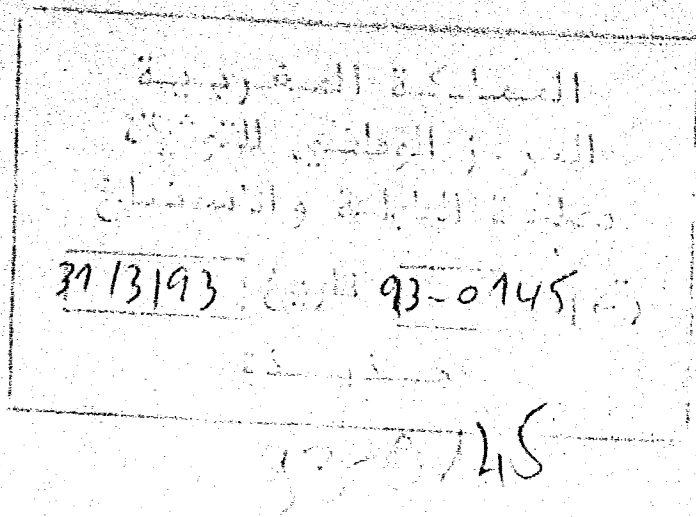 المملكة المغربية
المركز الوطني للتوثيق
مصلحة الطباعة والاستنساخ
رقم 93-0145 تاريخ 31/3/93
45